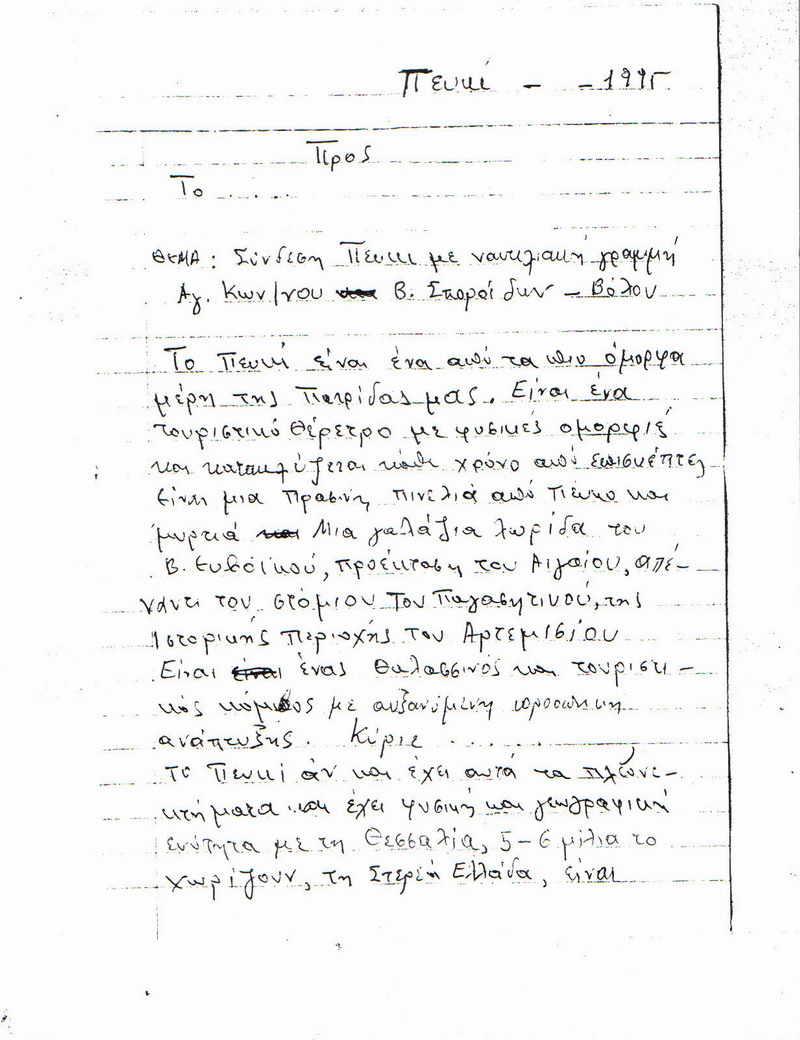 Πευκί - - 1995
Προς
Το . . . .
ΘΕΜΑ: Σύνδεση Πευκί με ναυτιλιακή γραμμή
Αγ. Κων/νου Β. Σποράδων - Βόλου
Το Πευκί είναι ένα από τα πιο όμορφα
μέρη της Πατρίδας μας. Είναι ένα
τουριστικό θέρετρο με φυσικές ομορφιές
και κατακλύζεται κάθε χρόνο από επισκέπτες
Είναι μια πράσινη πινελιά από Πεύκο και
μυρτιά Μια γαλάζια λωρίδα του
Β. Ευβοϊκού, προέκταση του Αιγαίου, απέ-
ναντι του στόμιου του Παγασητινού, της
Ιστορικής Περιοχής του Αρτεμισίου
Είναι ένας θαλασσινός και τουριστι-
κός κόμβος με αυξανόμενη
ανάπτυξης. Κύριε . . . . .
το Πευκί άν και έχει αυτά τα πλεονε-
κτήματα και έχει φυσική και γεωγραφική
ενότητα με τη Θεσσαλία, 5-6 μίλια το
χωρίζουν, τη Στερεή Ελλάδα, είναι